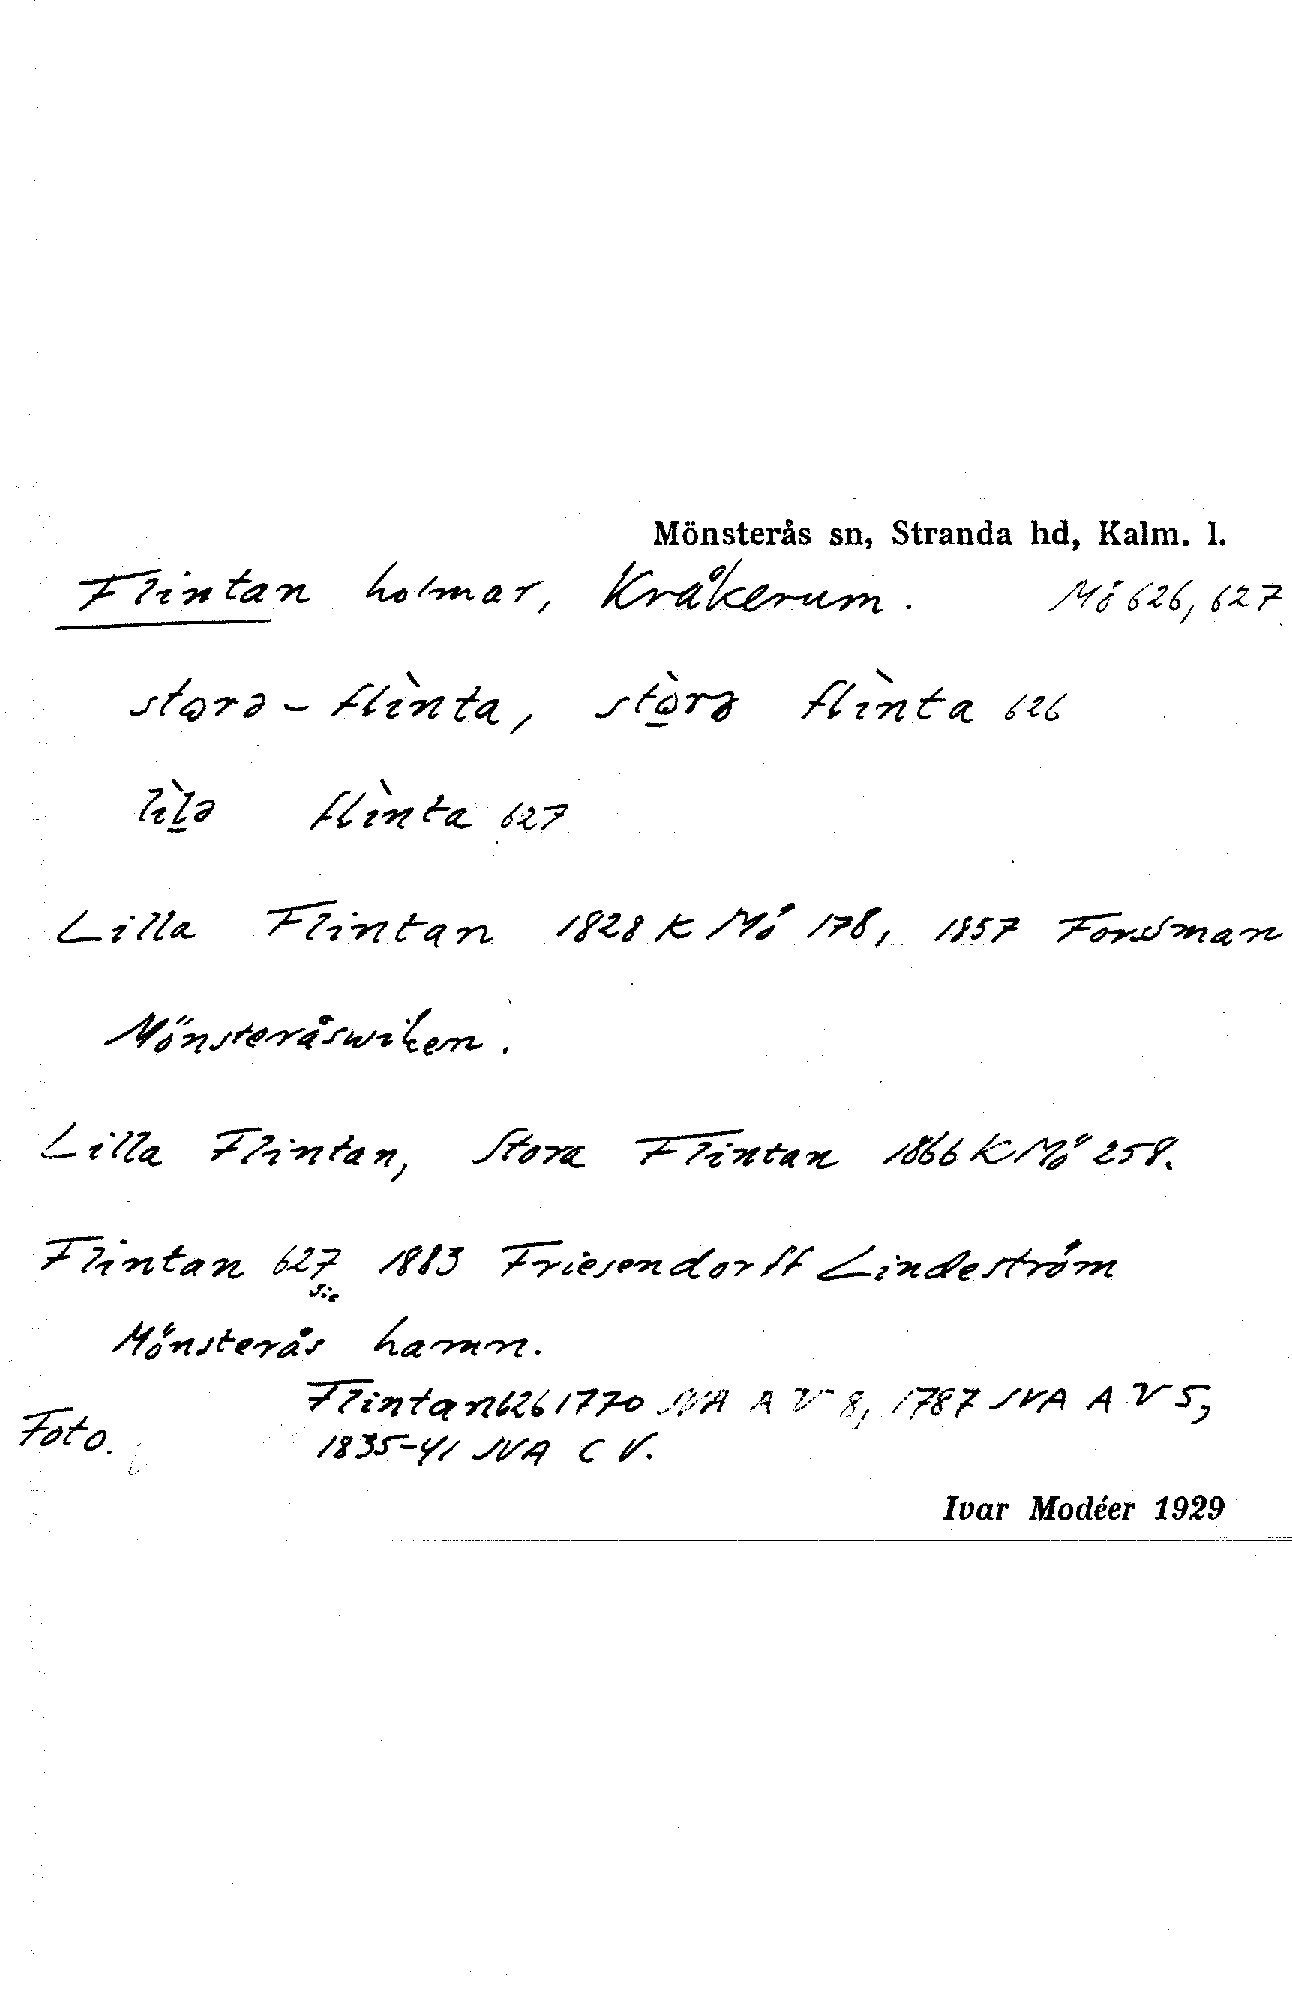 Mönsterås sn, Stranda hd, Kalm. l.
Flintan holmar, Kråkerum. Mö 626, 627
storə – flìnta, stòrə flìnta 626
lìlə flìnta 627
Lilla Flintan 1828 K Mö 178, 1857 Forssman
Mönsteråswiken.
Lilla Flintan, Stora Flintan 1866 K Mö 258.
Flintan 627 1883 Friesendorff Lindeström
sic
Mönsterås hamn.
Flintan 626 1770 SVA A V 8, 1787 SVA A V 5,
Foto. 1835-41 SVA C V.
Ivar Modéer 1929